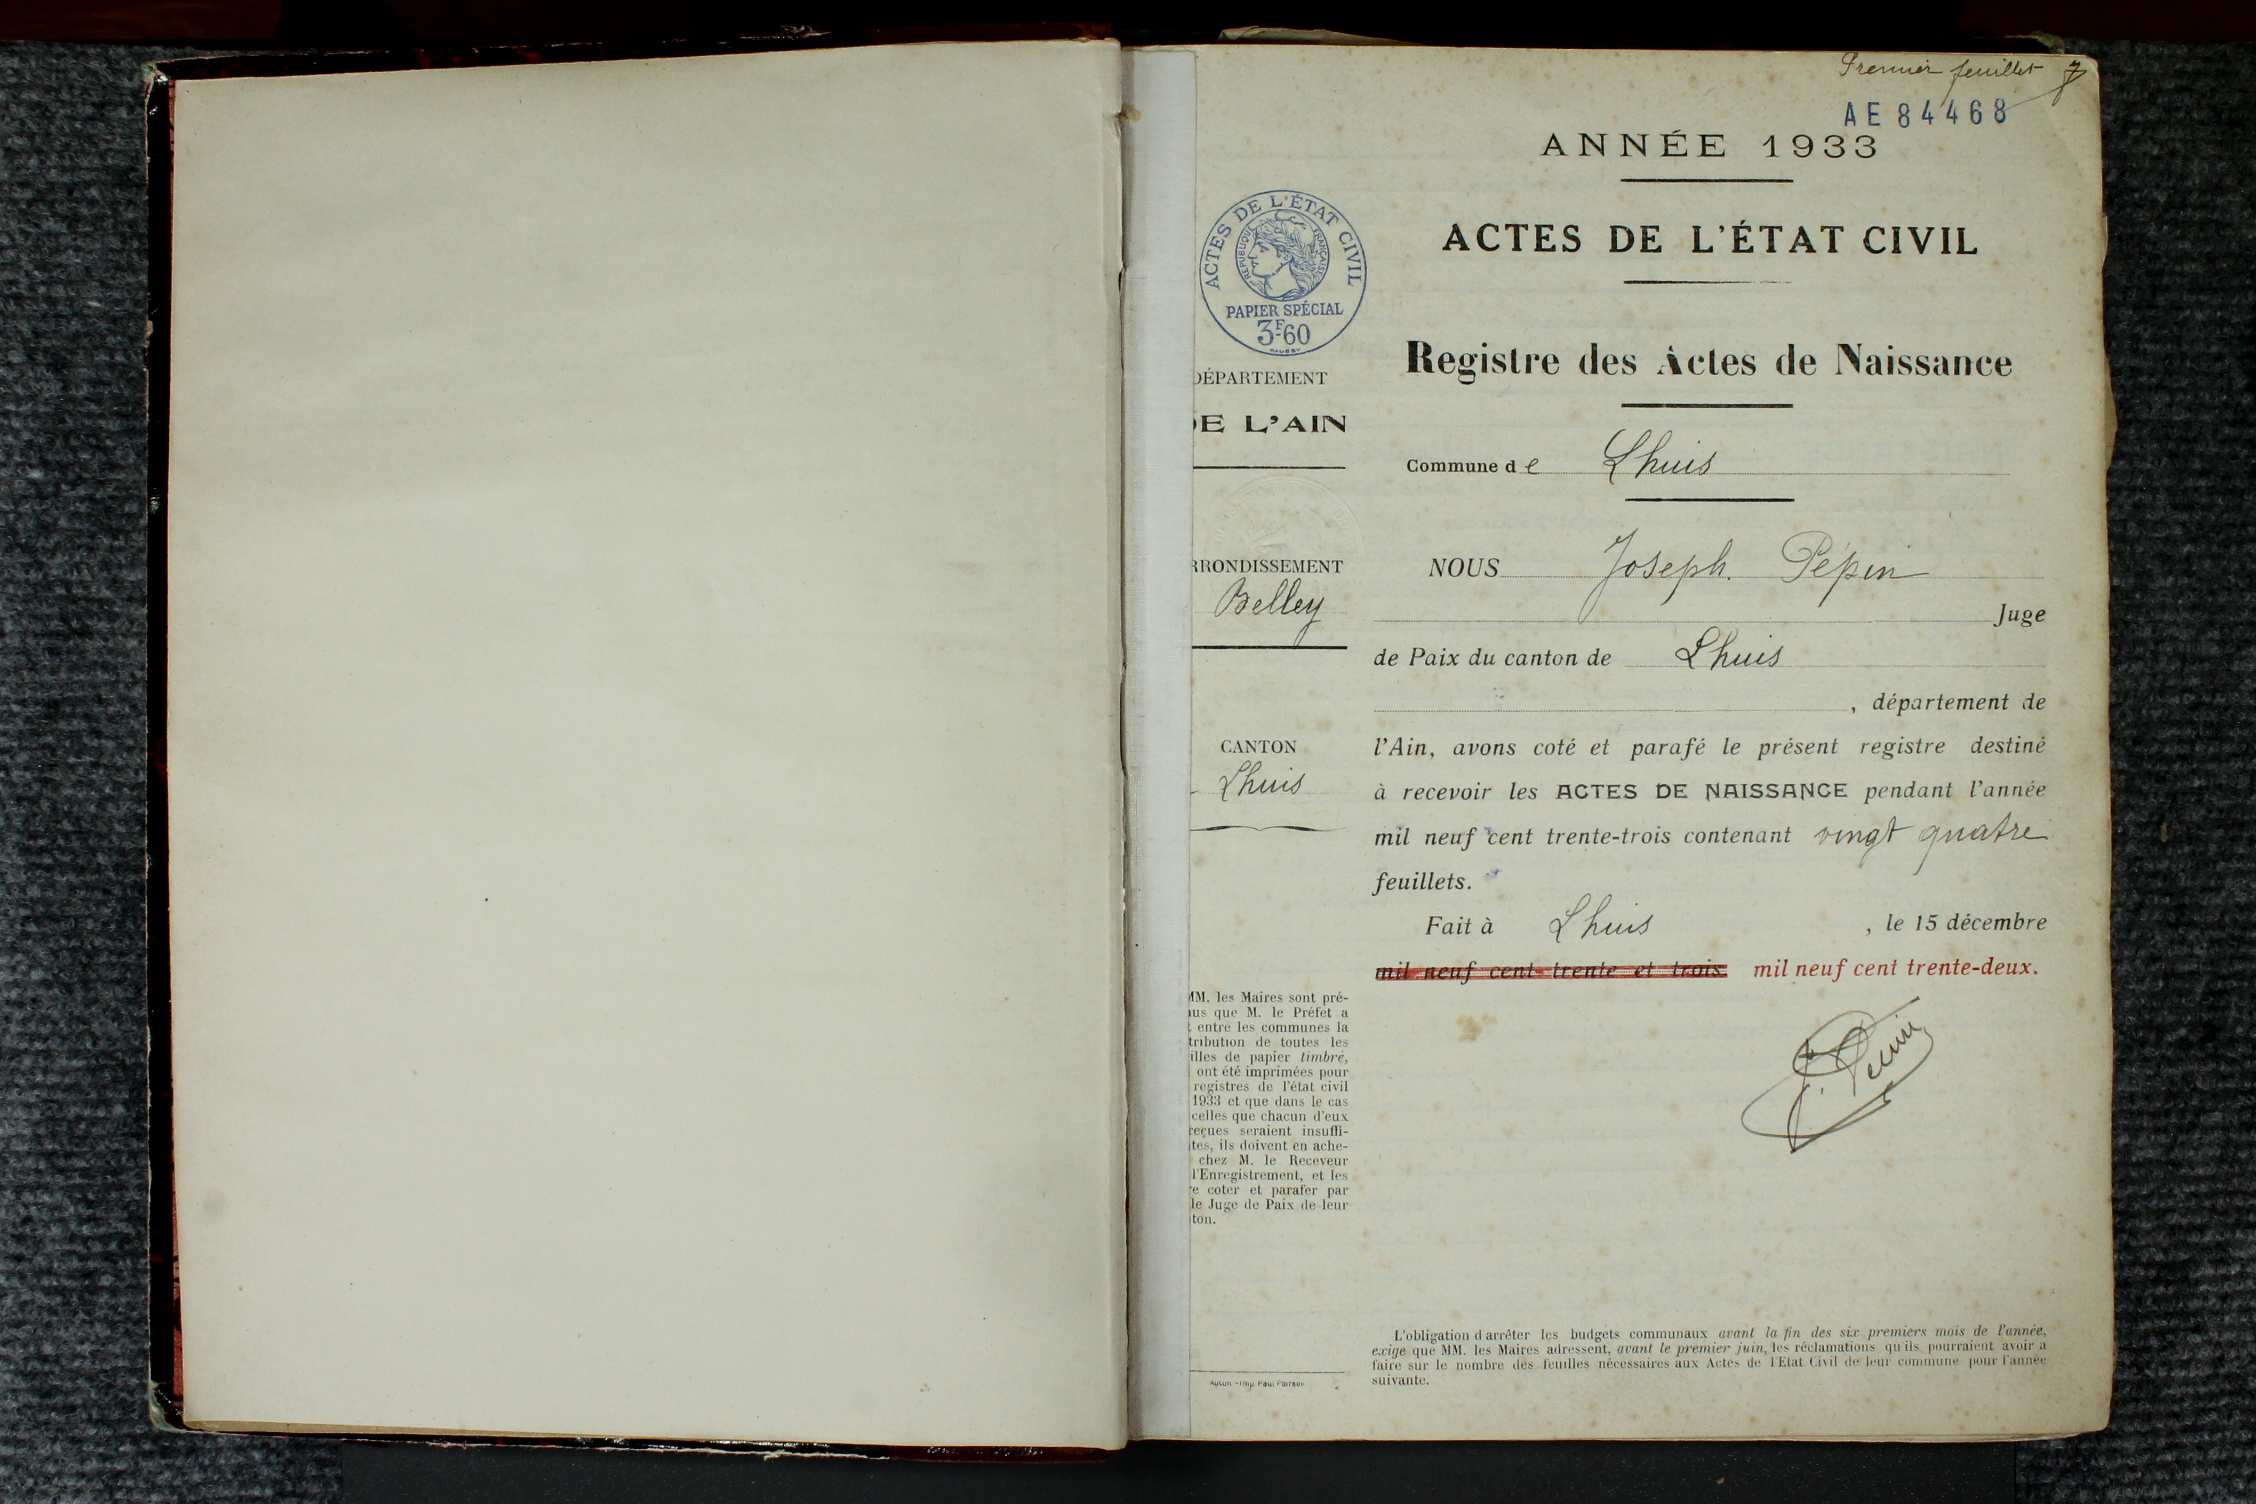 Premier feuillet
AE 84468
ANNÉE 1933
ACTES DE L'ÉTAT CIVIL
RÉPUBLIQUE FRANÇAISE
PAPIER SPÉCIAL
3F60
ACTES DE L'ÉTAT CIVIL
Registre des Actes de Naissance
DÉPARTEMENT
DE L'AIN
Commune de Lhuis
RRONDISSEMENT
Belley
CANTON
Lhuis
NOUS Joseph. Pépin
Juge
de Paix du canton de Lhuis
, département de
l'Ain, avons coté et parafé le présent registre destiné
à recevoir les ACTES DE NAISSANCE pendant l'année
mil neuf cent trente-trois contenant vingt quatre
feuillets.
Fait à Lhuis , le 15 décembre
mil neuf cent trente et trois mil neuf cent trente-deux.
J. Pépin
MM. les Maires sont pré-
nus que M. le Préfet a
entre les communes la
tribution de toutes les
illes de papier timbré,
ont été imprimées pour
registres de l'état civil
1933 et que dans le cas
celles que chacun d'eux
reçues seraient insuffi-
tes, ils doivent en ache-
chez M. le Receveur
l'Enregistrement, et les
e coter et parafer par
le Juge de Paix de leur
ton.
L'obligation d'arrêter les budgets communaux avant la fin des six premiers mois de l'année,
exige que MM. les Maires adressent, avant le premier juin, les réclamations qu'ils pourraient avoir à
faire sur le nombre des feuilles nécessaires aux Actes de l'Etat Civil de leur commune pour l'année
suivante.
Imp. Paul